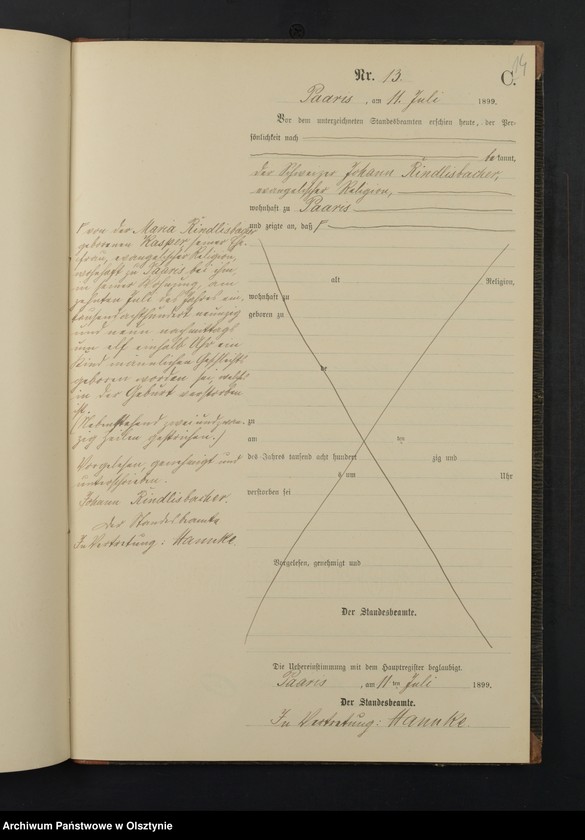 14
Nr. 13.
C.
Paaris, am 11. Juli 1899.
Vor dem unterzeichneten Standesbeamten erschien heute, der Per-
sönlichkeit nach
bekannt,
der Schweizer Johann Rindlisbacher,
evangelischer Religion,
wohnhaft zu Paaris
und zeigte an, daß
von der Maria Rindlisbacher
geborenen Kasper, seiner Ehe-
frau, evangelischer Religion,
wohnhaft zu Paaris bei ihm,
in seiner Wohnung, am
zehnten Juli des Jahres ein-
tausendachthundert neunzig
und neun nachmittags
um elf einhalb Uhr ein
Kind männlichen Geschlechts
geboren worden sei, welches
in der Geburt verstorben
ist.
(Nebenstehend zwei und zwan-
zig Zeilen gestrichen.)
Vorgelesen, genehmigt und
unterschrieben.
Johann Rindlisbacher.
Der Standesbeamte
In Vertretung: Hannke
alt
Religion,
wohnhaft zu
geboren zu
de
zu
am ten
des Jahres tausend acht hundert zig und
um Uhr
verstorben sei
Vorgelesen, genehmigt und
Der Standesbeamte.
Die Uebereinstimmung mit dem Hauptregister beglaubigt.
Paaris, am 11 ten Juli 1899.
Der Standesbeamte.
In Vertretung: Hannke.
Archiwum Państwowe w Olsztynie